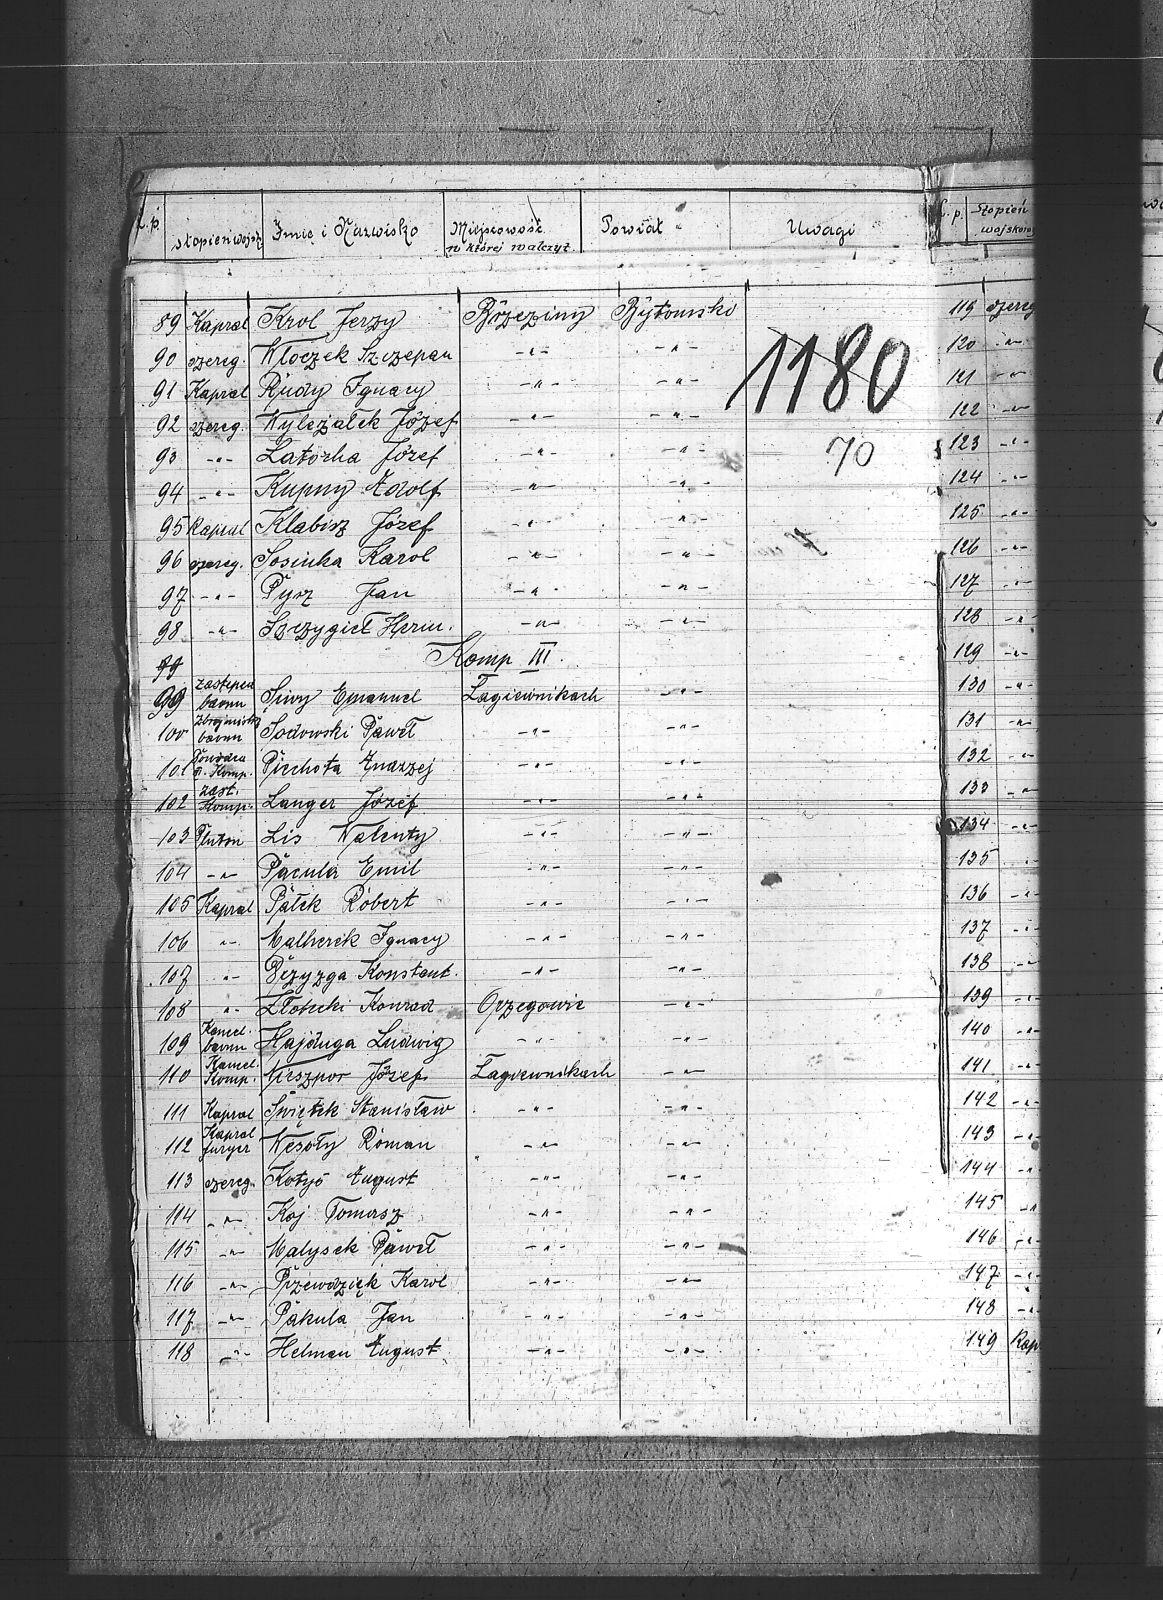 L.p. Stopień wojsk. Imię i Nazwisko Miejscowość w której walczył Powiat Uwagi
89 Kapral Krol Jerzy Brzeziny Bytomsko
90 szereg. Wloczek Szczepan -"- -"-
91 Kapral Rudy Ignacy -"- -"-
92 szereg. Wyleżałek Józef -"- -"-
93 -"- Latocha Józef -"- -"-
94 -"- Kupny Adolf -"- -"-
95 Kapral Klabisz Józef -"- -"-
96 szereg. Sosinka Karol -"- -"-
97 -"- Pysz Jan -"- -"-
98 -"- Szczygieł Herm. -"- -"-
1180
70
99 Komp III.
99 zastępca baonu Emanuel Łagiewnikach -"-
100 baonu Sodowski Paweł -"- -"-
101 Komp. Piechota Andrzej -"- -"-
102 zast. Komp. Langer Józef -"- -"-
103 Pluton Lis Walenty -"- -"-
104 -"- Pacula Emil -"- -"-
105 Kapral Pałek Robert -"- -"-
106 -"- Malherek Ignacy -"- -"-
107 -"- Konstant. -"- -"-
108 -"- Konrad Orzegowie -"-
109 Kancel. baonu Hajduga Ludwig -"- -"-
110 Kancel. Komp. Wieszpor Józef Łagiewnikach -"-
111 Kapral Świętek Stanisław -"- -"-
112 Kapral furyer Wesoły Roman -"- -"-
113 szereg. Kotyś August -"- -"-
114 -"- Koj Tomasz -"- -"-
115 -"- Malysek Paweł -"- -"-
116 -"- Przewdzięk Karol -"- -"-
117 -"- Pakula Jan -"- -"-
118 -"- Helman August -"- -"-
L.p. Stopień wojskow
119 szereg
120 -"-
121 -"-
122 -"-
123 -"-
124 -"-
125 -"-
126 -"-
127 -"-
128 -"-
129 -"-
130 -"-
131 -"-
132 -"-
133 -"-
134 -"-
135 -"-
136 -"-
137 -"-
138 -"-
139 -"-
140 -"-
141 -"-
142 -"-
143 -"-
144 -"-
145 -"-
146 -"-
147 -"-
148 -"-
149 Kap